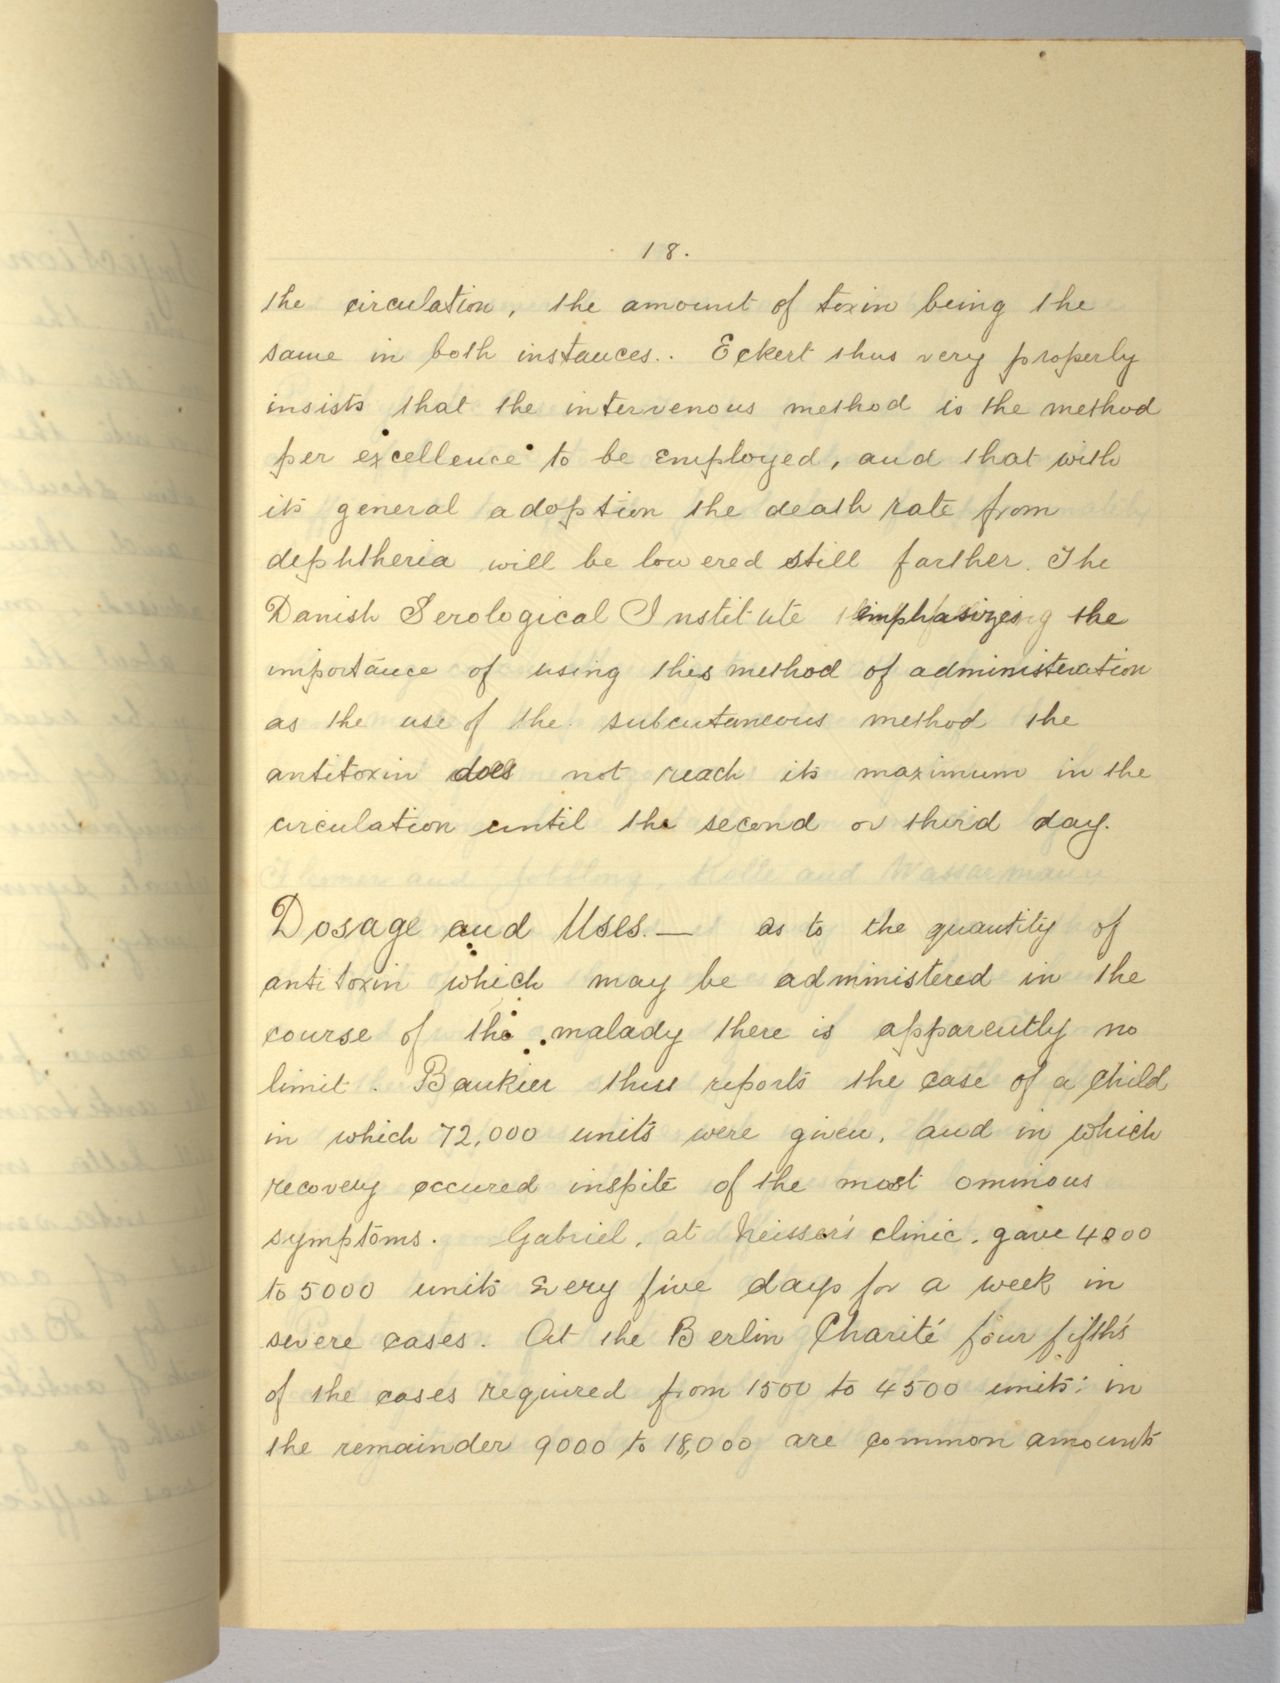 18.
the circulation, the amount of toxin being the
same in both instances.. Eckert thus very properly
insists that the intervenous method is the method
per excellence to be employed, and that with
its general adoption the death rate from
dephtheria will be lowered still farther. The
Danish Serological Institute emphasizes the
importance of using this method of administeration
as the use of the subcutaneous method the
antitoxin does not reach its maximum in the
circulation until the second or third day.
Dosage and Uses. — as to the quantity of
antitoxin which may be administered in the
course of the malady there is apparently no
limit. thus reports the case of a child
in which 72,000 units were given, and in which
recovery occured inspite of the most ominous
symptoms. Gabriel, at Neisser's clinic, gave 4000
to 5000 units every five days for a week in
severe cases. At the Berlin Charité four fifths
of the cases required from 1500 to 4500 units: in
the remainder 9000 to 18,000 are common amounts